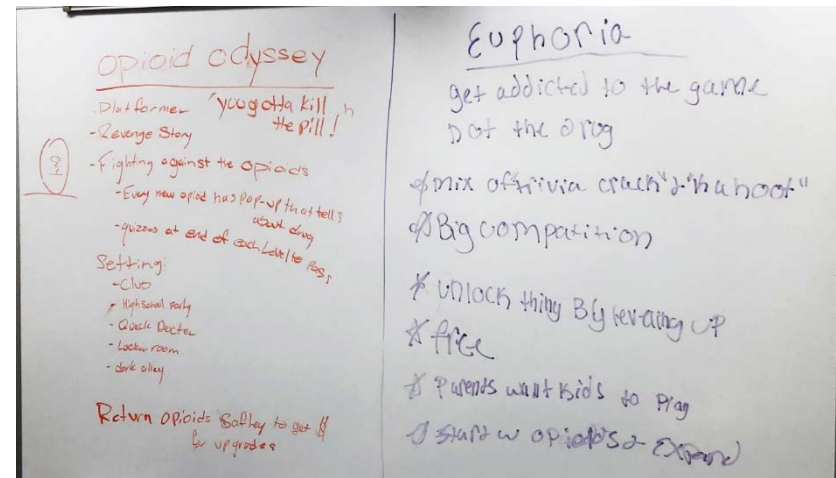 opioid odyssey
.Platformer "you gotta kill
the pill!"
-Revenge Story
-Fighting against the opioids
-Every new opiod has pop-up that tells
about drug
-quizzes at end of each level to Pass
Setting:
-Club
-High school party
-Quack Docter
-Locker room
-dark alley
Return opioids Saftey to get $
for upgrades
Euphoria
get addicted to the game
not the drug
mix of trivia crack" & "kahoot"
Big compatition
* unlock thing By leveling up
* free
* Parents want kids to play
start w opioids & Expand